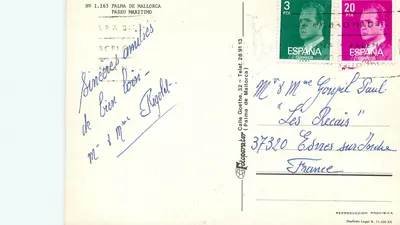 Nº 1.163 PALMA DE MALLORCA
PASEO MARITIMO
Sincères amitiés
de bien loin -
Mr & Mme
3
PTA
ESPAÑA
CORREOS
20
PTA
ESPAÑA
CORREOS
Mr & Mme Goupil Paul
"Les Recais"
37320 Esvres sur Indre
France
Calle Goethe, 32 - Telef. 289113
( Palma de Mallorca )
REPRODUCCION PROHIBIDA